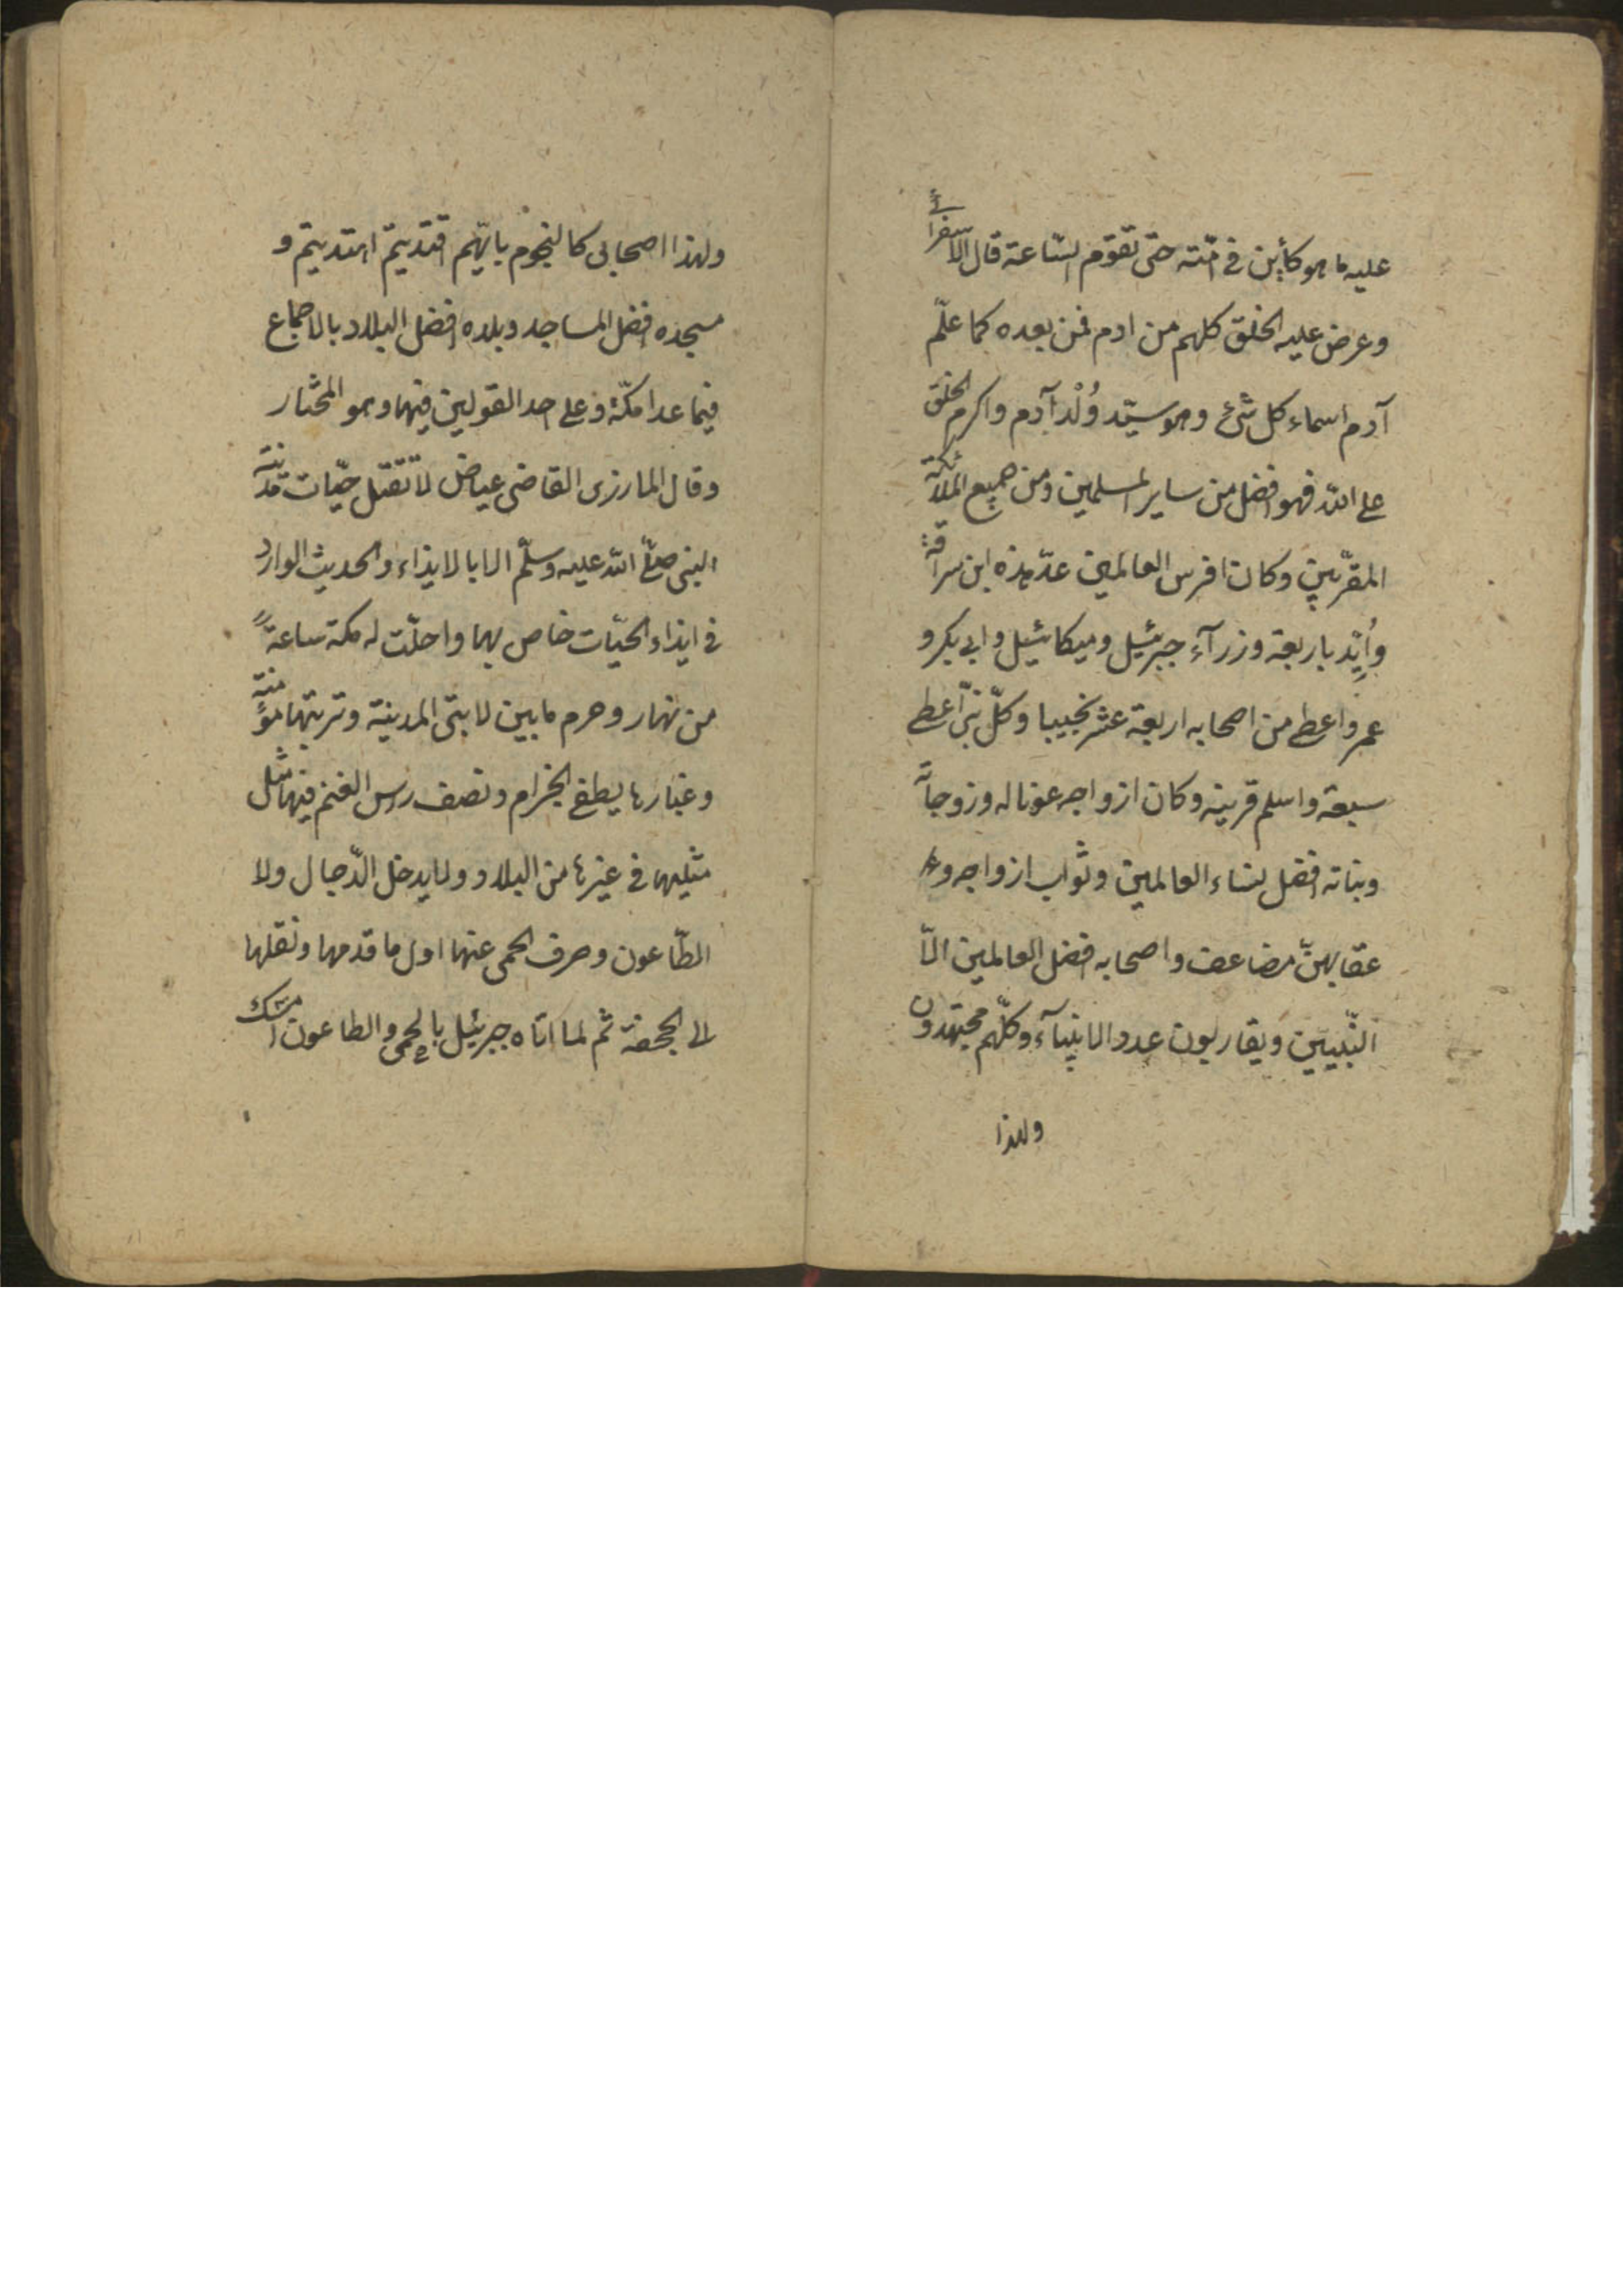 عليه ما هو كأين في امّته حتى تقوّم السّاعة قال الاسفرائى
وعرض عليه الخلق كلهم من ادم فمن بعده كما علّم
آدم اسماء كل شئ وهو سيّد وُلْد آدم واكرم الخلق
على الله فهو افضل من ساير المسلمين ومن جميع الملائكة
المقرّبين وكان افرس العالمين عدّ هذه ابن سراقة
وأيّد باربعة وزرآء جبرئيل وميكائيل وابى بكر و
عمر واعطى من اصحابه اربعة عشر نجيبا وكلّ نبىّ اعطى
سبعة واسلم قرينه وكان ازواجه عونا له وزوجاته
وبناته افضل نساء العالمين وثواب ازواجه و
عقابهنّ مضاعف واصحابه افضل العالمين الاّ
النّبيين ويقاربون عدد الانبيآء وكلّهم مجتهدون
ولهذا
ولهذا اصحابى كالنجوم بايّهم اقتديتم اهتديتم و
مسجده افضل المساجد وبلده افضل البلاد بالاجماع
فيما عدا مكّة وعلى احد القولين فيهما وهو المختار
وقال المارزى القاضى عياض لا تقتل حيّات مدينة
النبى صلّى الله عليه وسلّم الا بالايذاء والحديث الوارد
فى ايذاء الحيّات خاص بها واحلّت له مكة ساعةً
من نهار وحرم ما بين لابتى المدينة وتربتها مؤمنة
وغبارها يطفى الجزام ونصف رس الغنم فيها مثل
مثليها فى غيرها من البلاد ولا يدخل الدّجال ولا
الطّاعون وصرف الحمى عنها اول ما قدمها ونقلها
الى الجحفة ثم لما اتاه جبرئيل بالحمى والطاعون امسك